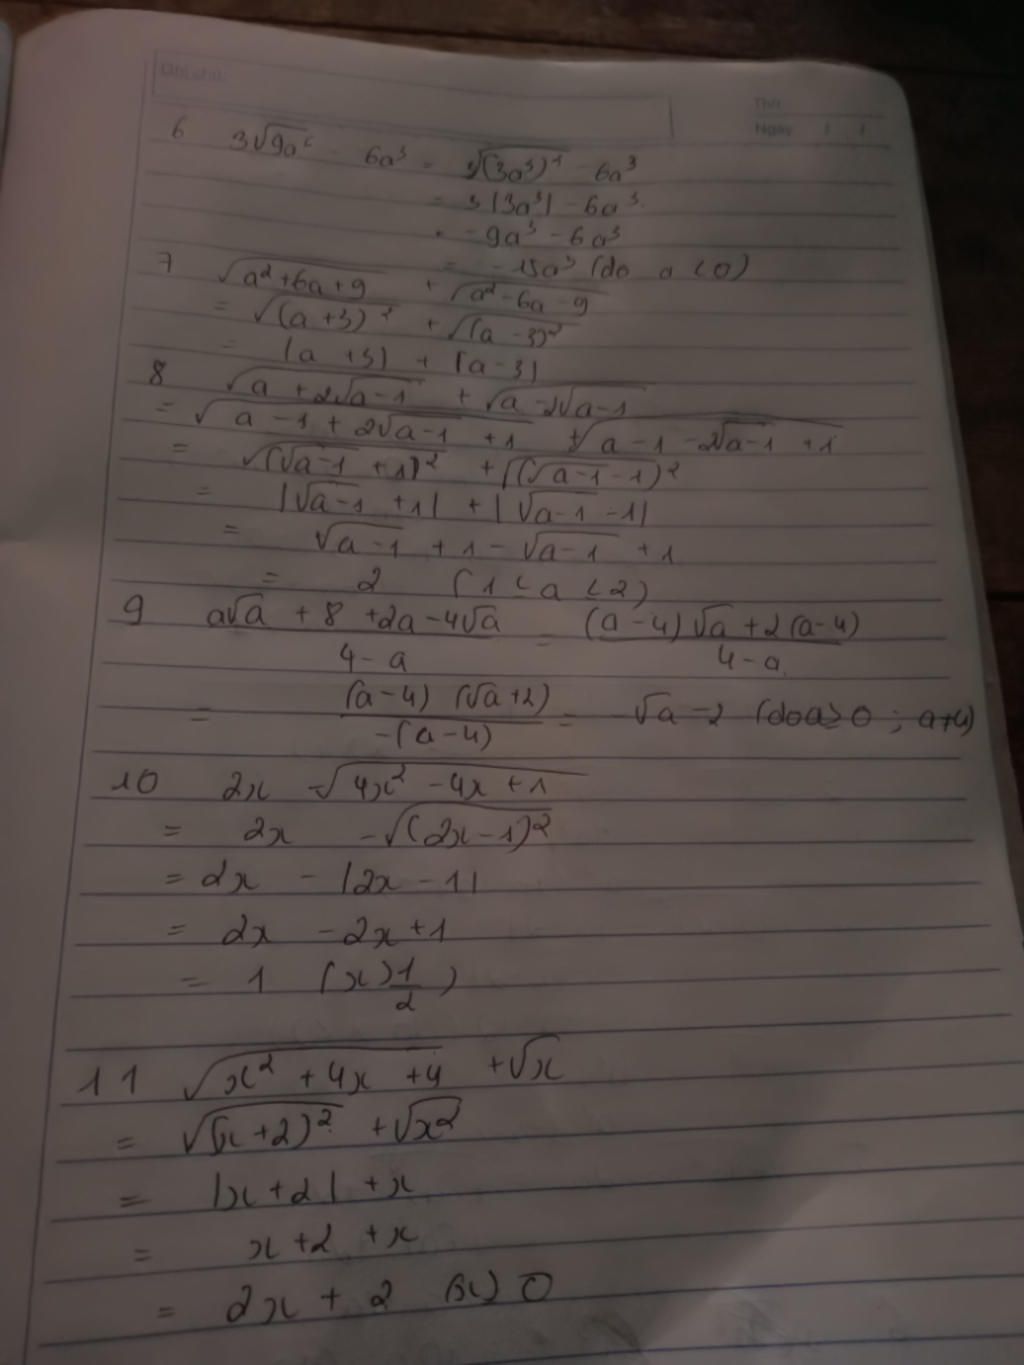 Ghi chú:
Thứ
Ngày / /
6 3√9a⁶ - 6a³ = 3√(3a³)² - 6a³
= 3|3a³| - 6a³
= -9a³ - 6a³
= -15a³ (do a < 0)
7 √a² + 6a + 9 + √a² - 6a - 9
= √(a + 3)² + √(a - 3)²
= |a + 3| + |a - 3|
8 √a + 2√a-1 + √a - 2√a-1
= √a - 1 + 2√a-1 + 1 + √a - 1 - 2√a-1 + 1
= √(√a-1 + 1)² + √(√a-1 - 1)²
= |√a-1 + 1| + |√a-1 - 1|
= √a-1 + 1 - √a-1 + 1
= 2 (1 ≤ a < 2)
9 a√a + 8 + 2a - 4√a / 4 - a = (a - 4)√a + 2(a - 4) / 4 - a
= (a - 4)(√a + 2) / -(a - 4) = √a - 2 (do a ≥ 0 ; a ≠ 4)
10 2x - √4x² - 4x + 1
= 2x - √(2x - 1)²
= 2x - |2x - 1|
= 2x - 2x + 1
= 1 (x > 1/2)
11 √x² + 4x + 4 + √x
= √(x + 2)² + √x²
= |x + 2| + x
= x + 2 + x
= 2x + 2 (x > 0